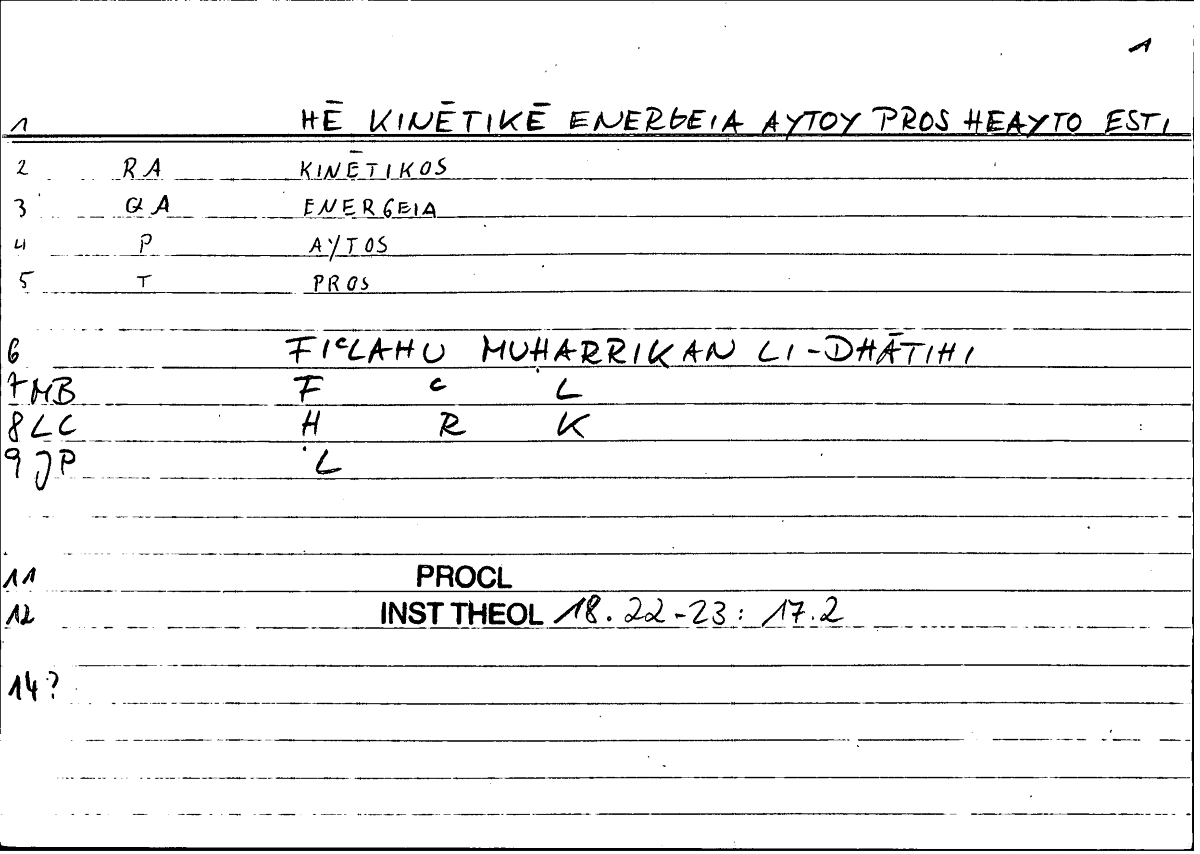 1
1 HĒ KINĒTIKĒ ENERGEIA AYTOY PROS HEAYTO ESTI
2 RA KINĒTIKOS
3 QA ENERGEIA
4 P AYTOS
5 T PROS
6 FIᶜLAHU MUḤARRIKAN LI-DHĀTIHI
7 MB F ᶜ L
8 LC Ḥ R K
9 JP L
11 PROCL
12 INST THEOL 18.22-23: 17.2
14?